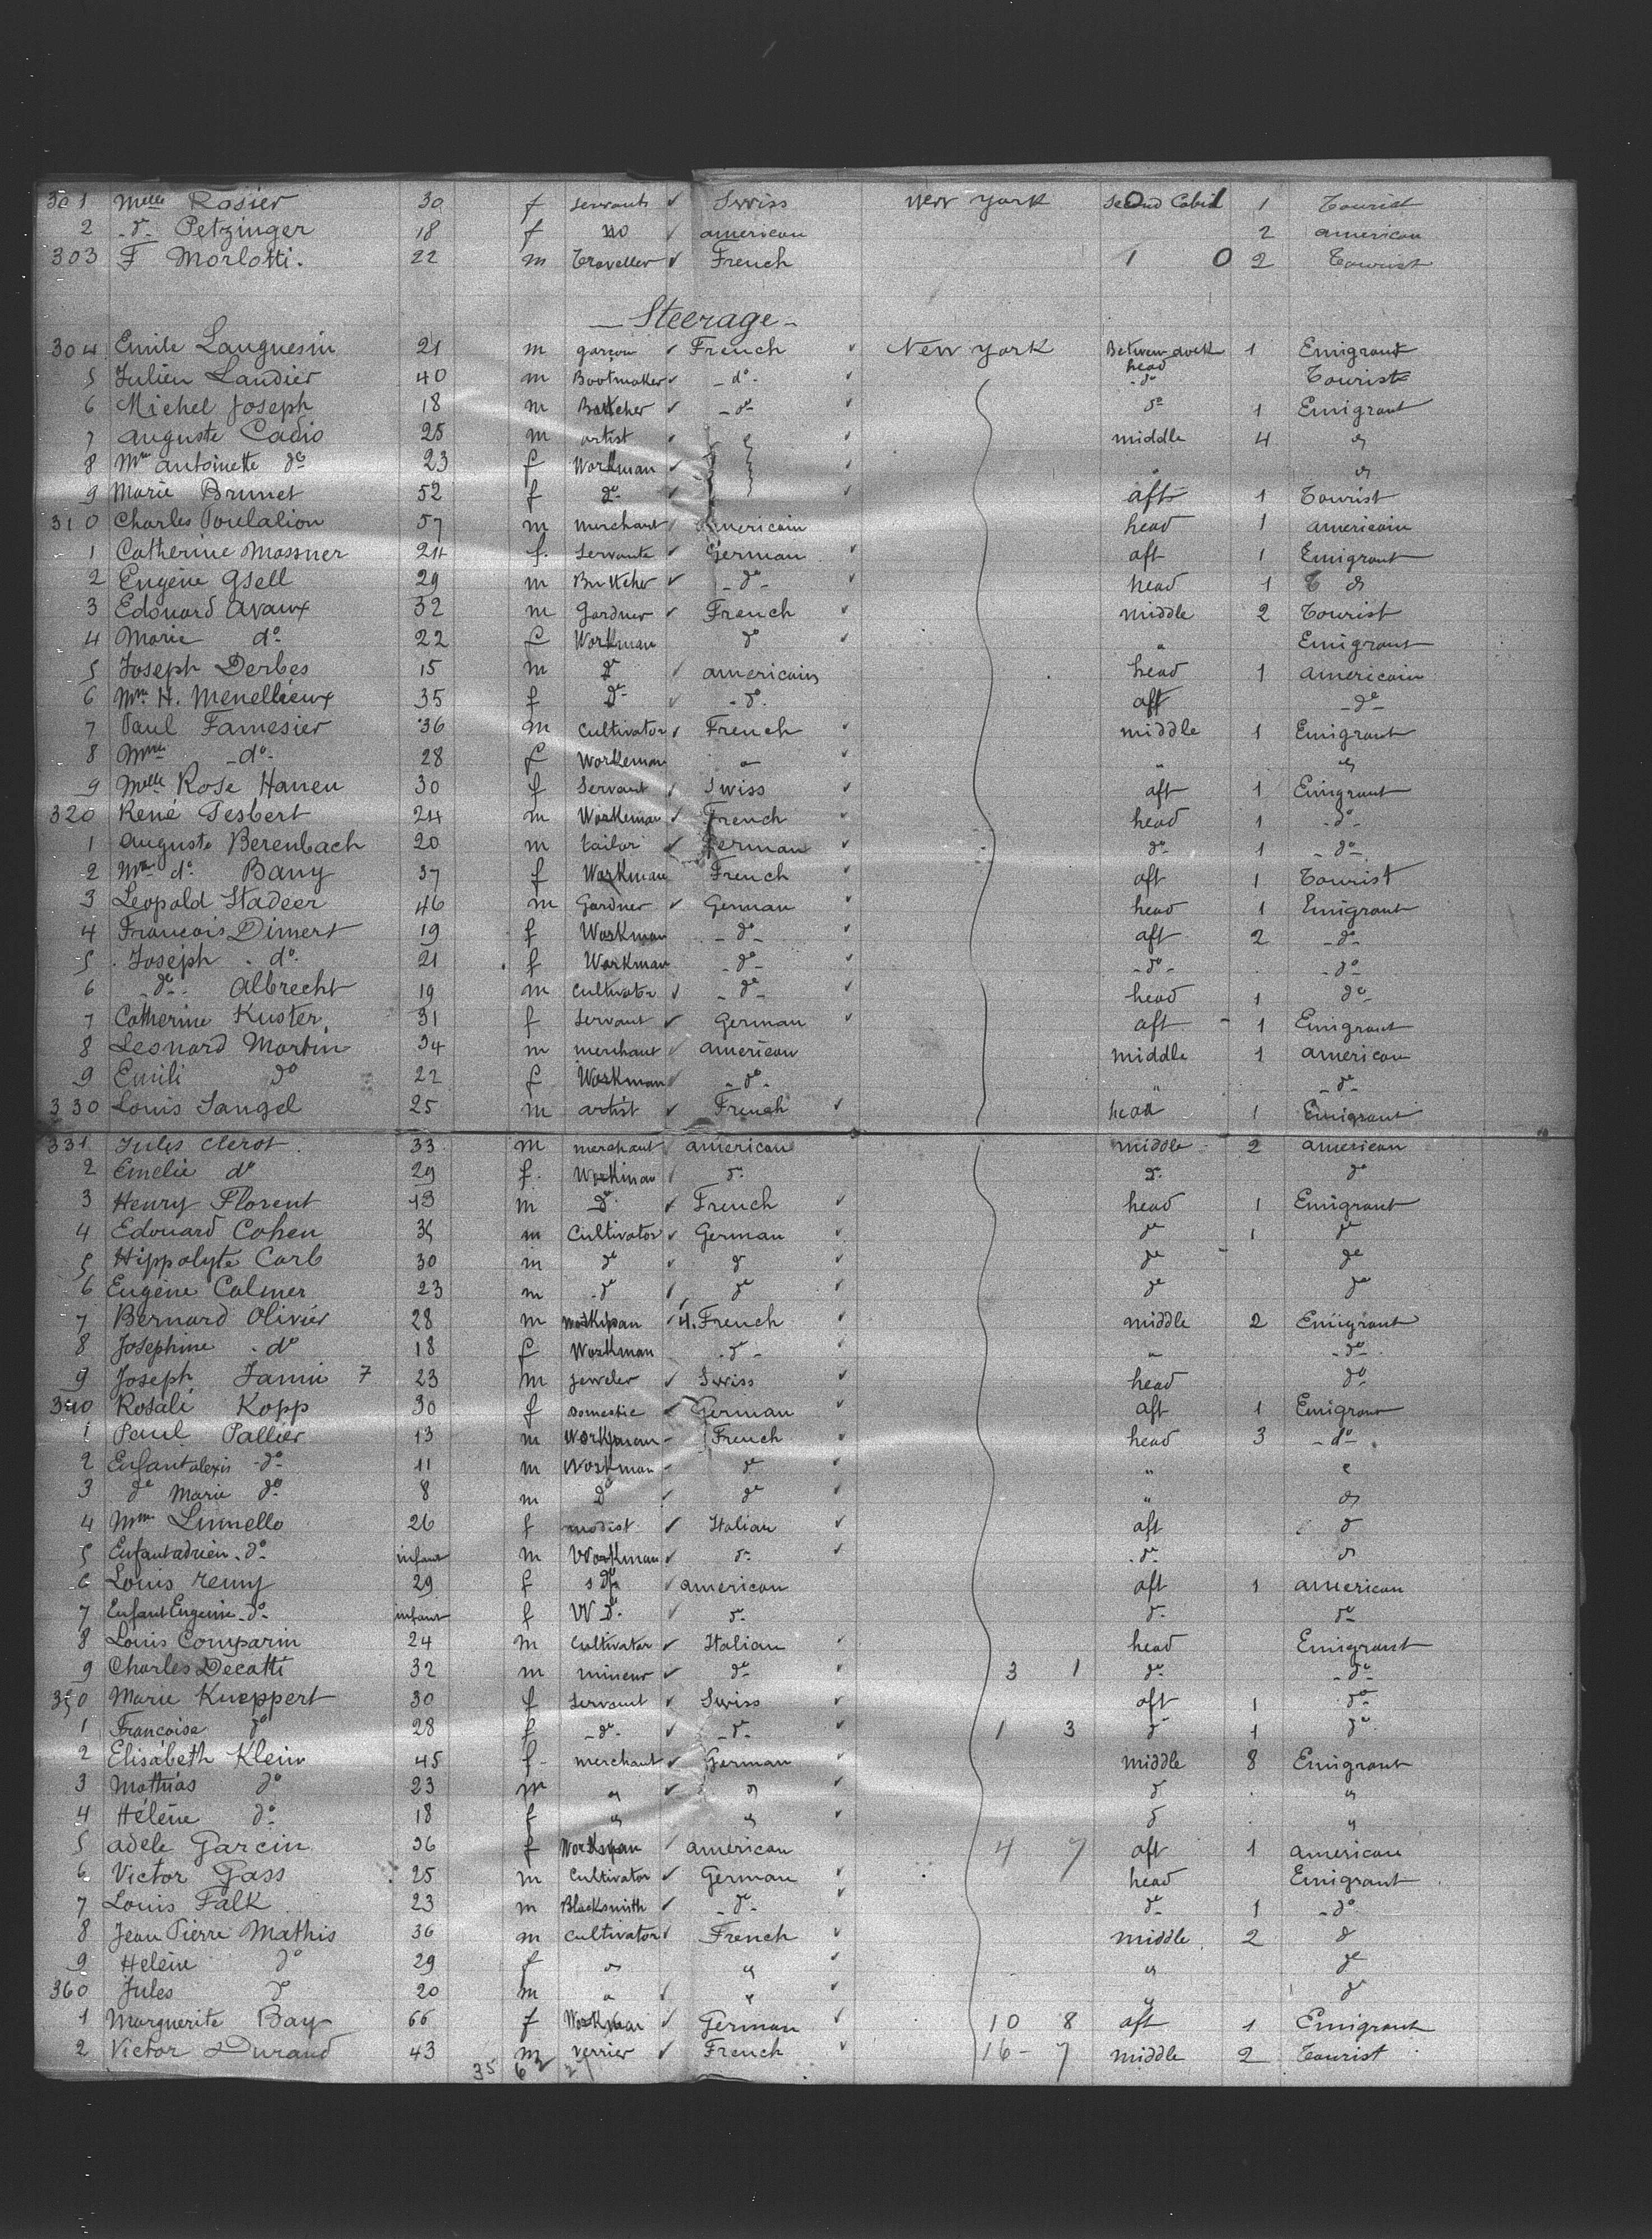 301 Melle Rosier 30 f servante Swiss New York Second Cabin 1 Tourist
2 -do- Petzinger 18 f no american 2 american
303 F Morlotti. 22 m Traveller French 1 0 2 Tourist
- Steerage -
304 Emile Languesin 21 m garçon French New York Between deck head 1 Emigrant
5 Julien Landier 40 m Bootmaker -do- -do Tourist
6 Michel Joseph 18 m Buttcher -do- do 1 Emigrant
7 auguste Cadio 25 m artist middle 4 do
8 Mme antoinette do 23 f Workman " do
9 Marie Brunet 52 f do aft 1 Tourist
310 Charles Poulalion 57 m merchant americain head 1 americain
1 Catherine Mossner 24 f. Servante German aft 1 Emigrant
2 Eugène Gsell 29 m Buttcher -do- head 1 do
3 Edouard Avaux 32 m Gardner French middle 2 Tourist
4 Marie do 22 f Workman do " Emigrant
5 Joseph Derbes 15 m do americain head 1 americain
6 Mme H. Menellieux 35 f do -do. aft -do-
7 Paul Famesier 36 m Cultivator French middle 1 Emigrant
8 Mme -do. 28 f Workeman " " do
9 Melle Rose Haneu 30 f Servant Swiss aft 1 Emigrant
320 René Tesbert 24 m Workeman French head 1 -do-
1 auguste Berenbach 20 m tailor German do 1 -do-
2 Mme do Bany 37 f Workman French aft 1 Tourist
3 Leopold Stadeer 46 m Gardner German head 1 Emigrant
4 François Dimert 19 f Workman -do- aft 2 -do-
5 Joseph do 21 f Workman -do- -do- -do-
6 -do- Albrecht 19 m Cultivator -do- head 1 do
7 Catherine Kuster 31 f Servant German aft 1 Emigrant
8 Leonard Martin 34 m merchant american middle 1 american
9 Emili do 22 f Workman -do- " -do-
330 Louis Sangel 25 m artist French head 1 Emigrant
331 Jules Clerot 33 m merchant american middle 2 american
2 Emelie do 29 f. Workman do do do
3 Henry Florent 43 m do French head 1 Emigrant
4 Edouard Cohen 35 m Cultivator German do 1 do
5 Hippolyte Carb 30 m do do do do
6 Eugène Calmer 23 m do do do do
7 Bernard Olivier 28 m Workman 4. French middle 2 Emigrant
8 Josephine do 18 f Workman -do- " -do-
9 Joseph Jamin 7 23 m jeweler Swiss head do
340 Rosali Kopp 30 f Domestic German aft 1 Emigrant
1 Paul Pallier 13 m Workman French head 3 -do-
2 Enfant alexis -do- 11 m Workman do "
3 do Marie do 8 m do do " do
4 Mme Linnello 26 f modist Italian aft do
5 Enfant adrien -do- infant m Workman do do do
6 Louis remy 29 f do american aft 1 american
7 Enfant Eugenie -do- infant f W do do do do
8 Louis Comparin 24 m Cultivator Italian head Emigrant
9 Charles Decatti 32 m mineur do 3 1 do -do-
350 Marie Kueppert 30 f Servant Swiss aft 1 do
1 Françoise do 28 f -do- -do- 1 3 do 1 do
2 Elisabeth Klein 45 f merchant German middle 8 Emigrant
3 Mathias do 23 m do do do do
4 Hélène do 18 f do do do do
5 adele Garcin 36 f Workman american 4 7 aft 1 american
6 Victor Gass 25 m Cultivator German head Emigrant
7 Louis Falk 23 m Blacksmith -do- do 1 -do
8 Jean Pierre Mathis 36 m Cultivator French middle 2 do
9 Helène do 29 f do do do do
360 Jules do 20 m " " " do
1 Marguerite Bay 66 f Workman German 10 8 aft 1 Emigrant
2 Victor Durand 43 m Verrier French 16- 7 middle 2 Tourist
35 6